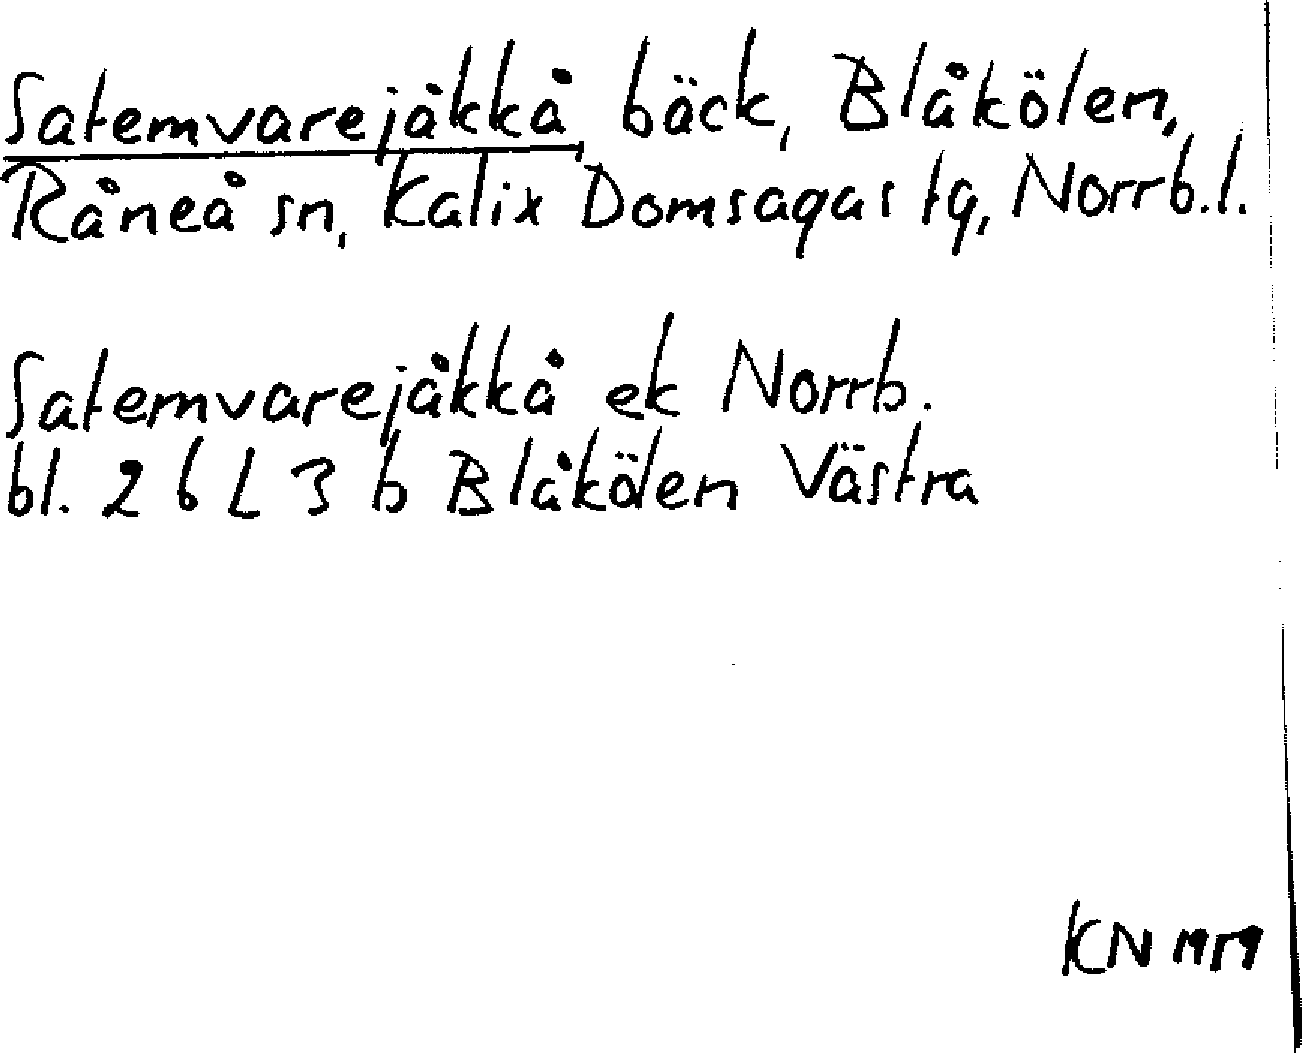 Satemvarejåkkå, bäck, Blåkölen,
Råneå sn, Kalix Domsagas tg, Norrb.l.
Satemvarejåkkå ek Norrb.
bl. 26 L 3 b Blåkölen Västra
KN